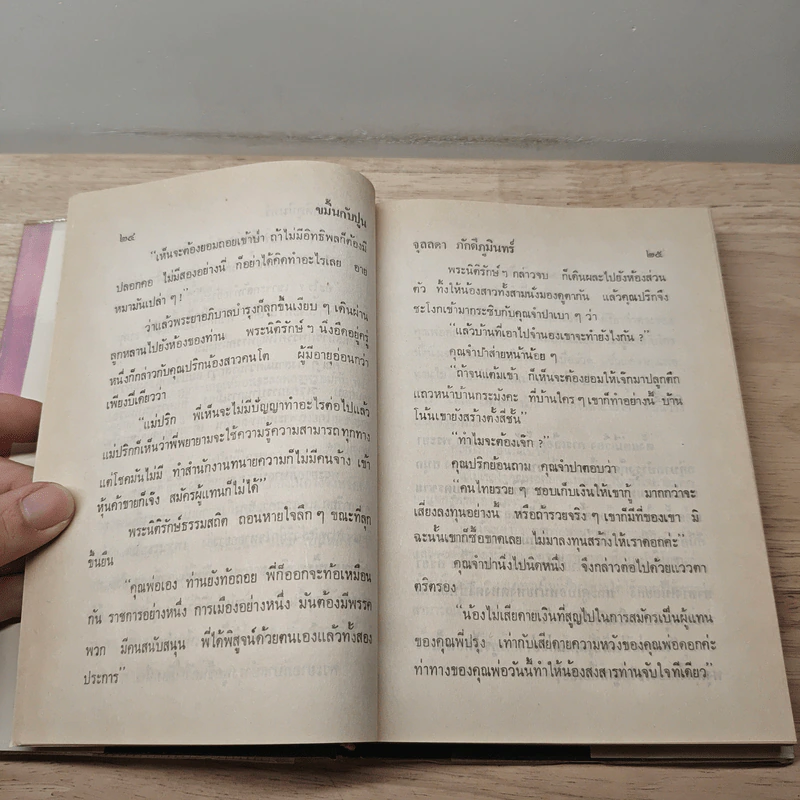 ขมิ้นกับปูน
๒๔
"เห็นจะต้องยอมถอยเข้าป่า ถ้าไม่มีอิทธิพลก็ต้องมี
ปลอกคอ ไม่มีสองอย่างนี้ ก็อย่าได้คิดทำอะไรเลย อาย
หมามันเปล่า ๆ !"
ว่าแล้วพระยาอภิบาลบำรุงก็ลุกขึ้นเงียบ ๆ เดินผ่าน
ลูกหลานไปยังห้องของท่าน พระนิติรักษ์ ฯ นิ่งอึดอยู่ครู่
หนึ่งก็กล่าวกับคุณปริกน้องสาวคนโต ผู้มีอายุอ่อนกว่า
เพียงปีเดียวว่า
"แม่ปริก พี่เห็นจะไม่มีปัญญาทำอะไรต่อไปแล้ว
แม่ปริกก็เห็นว่าพี่พยายามจะใช้ความรู้ความสามารถทุกทาง
แต่โชคมันไม่มี ทำสำนักงานทนายความก็ไม่มีคนจ้าง เข้า
หุ้นค้าขายก็เจ๊ง สมัครผู้แทนก็ไม่ได้"
พระนิติรักษ์ธรรมสถิต ถอนหายใจลึก ๆ ขณะที่ลุก
ขึ้นยืน
"คุณพ่อเอง ท่านยังท้อถอย พี่ก็ออกจะท้อเหมือน
กัน ราชการอย่างหนึ่ง การเมืองอย่างหนึ่ง มันต้องมีพรรค
พวก มีคนสนับสนุน พี่ได้พิสูจน์ด้วยตนเองแล้วทั้งสอง
ประการ"
จุลลดา ภักดีภูมินทร์
๒๕
พระนิติรักษ์ ฯ กล่าวจบ ก็เดินผละไปยังห้องส่วน
ตัว ทิ้งให้น้องสาวทั้งสามนั่งมองดูตากัน แล้วคุณปริกจึง
ชะโงกเข้ามากระซิบกับคุณจำปาเบา ๆ ว่า
"แล้วบ้านที่เอาไปจำนองเขาจะทำยังไงกัน ?"
คุณจำปาส่ายหน้าน้อย ๆ
"ถ้าจนแต้มเข้า ก็เห็นจะต้องยอมให้เจ๊กมาปลูกตึก
แถวหน้าบ้านกระมังคะ ที่บ้านใคร ๆ เขาก็ทำอย่างนี้ บ้าน
โน้นเขายังสร้างตั้งสี่ชั้น"
"ทำไมจะต้องเจ๊ก ?"
คุณปริกย้อนถาม คุณจำปาตอบว่า
"คนไทยรวย ๆ ชอบเก็บเงินให้เขากู้ มากกว่าจะ
เสี่ยงลงทุนอย่างนี้ หรือถ้ารวยจริง ๆ เขาก็มีที่ของเขา มิ
ฉะนั้นเขาก็ซื้อขาดเลย ไม่มาลงทุนสร้างให้เราดอกค่ะ"
คุณจำปานิ่งไปนิดหนึ่ง จึงกล่าวต่อไปด้วยแววตา
ตริตรอง
"น้องไม่เสียดายเงินที่สูญไปในการสมัครเป็นผู้แทน
ของคุณพี่ปรุง เท่ากับเสียดายความหวังของคุณพ่อดอกค่ะ
ท่าทางของคุณพ่อวันนี้ทำให้น้องสงสารท่านจับใจทีเดียว"